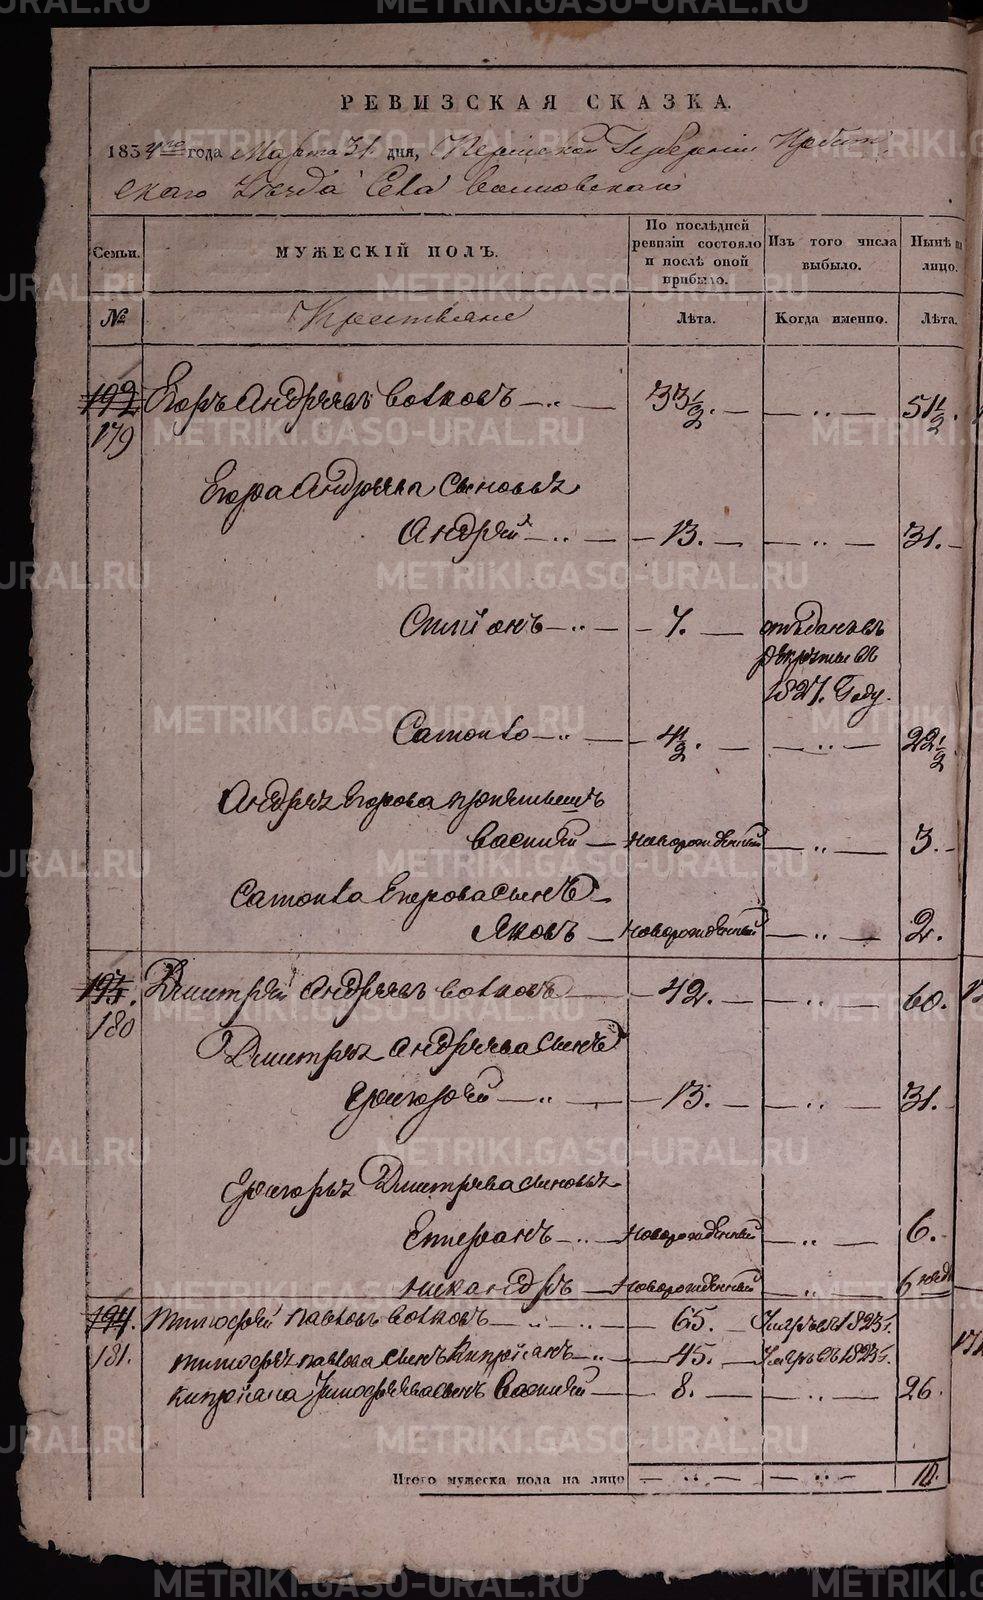 РЕВИЗСКАЯ СКАЗКА.
1834го года Марта 31 дня, Пермской Губернии Ирбит
скаго Уезда Села
Семьи. МУЖЕСКІЙ ПОЛЪ. По послѣдней ревизіи состояло и послѣ оной прибыло. Изъ того числа выбыло. Нынѣ на лицо.
№ Крестьяне Лѣта. Когда именно. Лѣта.
192 Егоръ Андреевъ Волковъ — 33½. — — 51½.
179
Егора Андреева сыновья
Андрей — 13. — — 31.
Степанъ — 7. — отъданъ въ
рекруты въ
1827. Году.
Самойло — 4½. — — 22½
Андрея Егорова
Василий — новорожденный — 3.
Самойла Егорова сынъ
Яковъ — новорожденный — 2.
193. Дмитрей Андреевъ Волковъ — 42. — — 60.
180
Дмитрея Андреева сынъ
Григорей — 13. — — 31.
Григорья Дмитрева сыновья
— новорожденный — 6.
Никандръ — новорожденный — 6 неде
194. Тимофей Павловъ Волковъ — 65. — Умре въ 1823г.
181. Тимофея Павлова сынъ Кипрiанъ — 45. — Умре въ 1825г.
Кипрiана Тимофеева сынъ Василий — 8. — — 26.
Итого мужеска пола на лицо — — 10.
METRIKI.GASO-URAL.RU